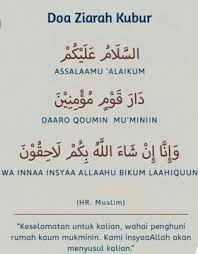 Doa Ziarah Kubur
السَّلَامُ عَلَيْكُمْ
ASSALAAMU 'ALAIKUM
دَارَ قَوْمٍ مُؤْمِنِيْنَ
DAARO QOUMIN MU'MINIIN
وَإِنَّا إِنْ شَاءَ اللَّهُ بِكُمْ لَاحِقُوْنَ
WA INNAA INSYAA ALLAAHU BIKUM LAAHIQUUN
(HR. Muslim)
"Keselamatan untuk kalian, wahai penghuni
rumah kaum mukminin. Kami insyaaAllah akan
menyusul kalian."